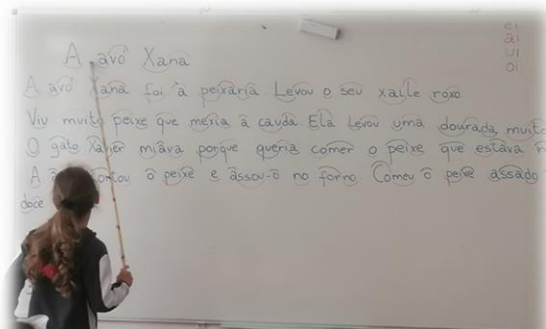 A avó Xana
ei
ai
ui
oi
A avó Xana foi à peixaria Levou o seu xaile roxo
Viu muito peixe que mexia a cauda Ela levou uma dourada, muito
O gato Xavier miava porque queria comer o peixe que estava
A cortou o peixe e assou-o no forno Comeu o peixe assado
doce